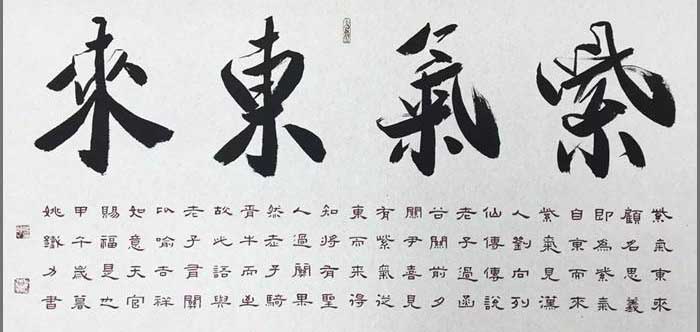 紫氣東來
紫氣東來
顧名思義
即為紫氣
自東而來
紫氣見漢
人劉向列
仙傳傳說
老子過函
谷關前夕
關尹喜見
有紫氣從
東而來得
知將有聖
人過關果
然老子騎
青牛而至
故此語與
老子有關
以喻吉祥
知意天官
賜福是也
甲午歲暮
姚鐵力書